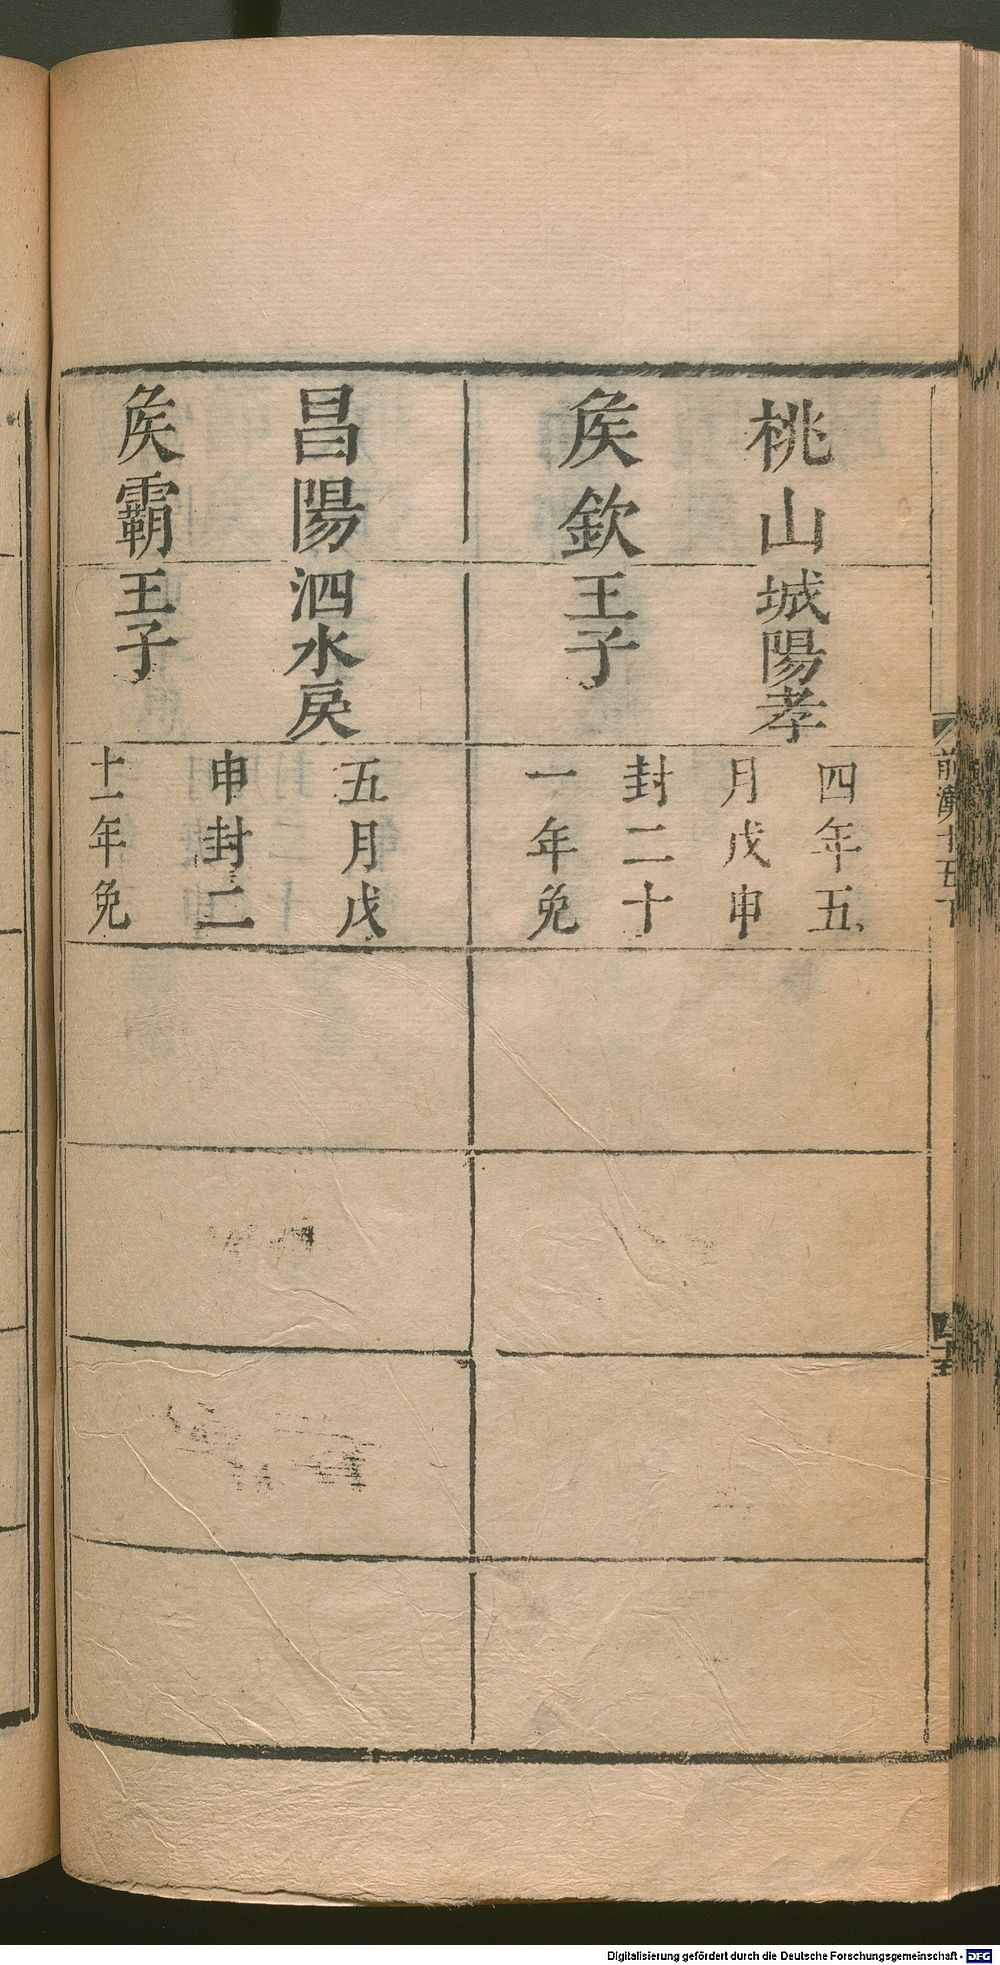 桃山
矦欽
城陽孝
王子
四年五
月戊申
封二十
一年免
昌陽
矦霸
泗水戾
王子
五月戊
申封二
十一年免
前漢十五下
Digitalisierung gefördert durch die Deutsche Forschungsgemeinschaft - DFG